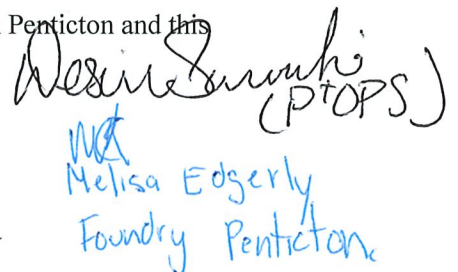 Penticton and this
(P+OPS)
Melisa Edgerly
Foundry Penticton